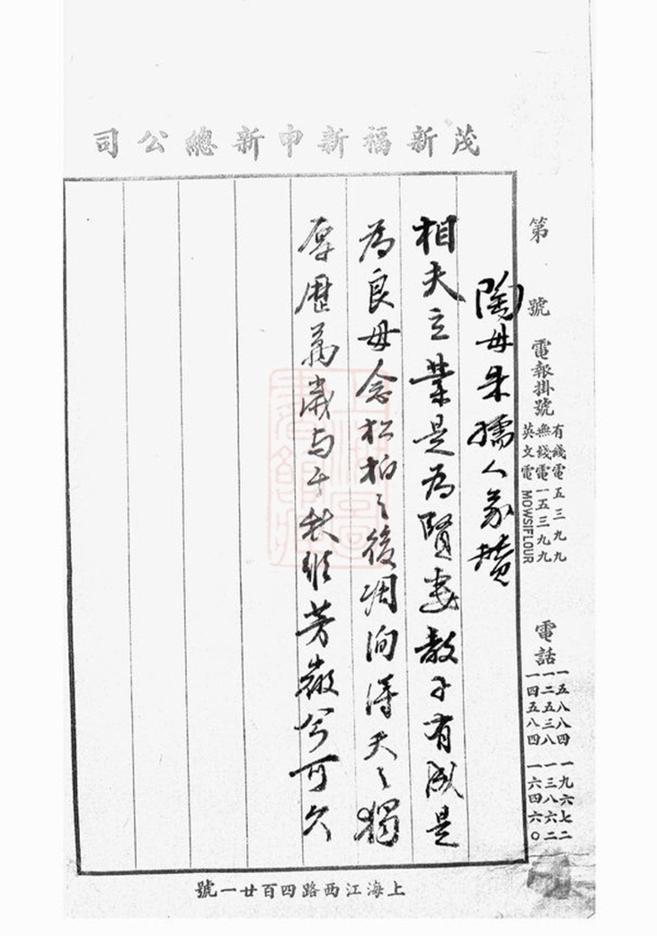 茂新福新申新總公司
第　號
電報掛號
有錢電五三九九
無錢電一五三九九
英文電MOWSIFLOUR
電話
一五八八四 一九六七二
一二五三八 一三八六二
一四五八四 一六四六〇
陶母朱孺人象贊
相夫立業是為賢妻教子有成是
為良母念松柏之後凋洵得天之獨
厚歷萬歲与千秋頌芳徽兮可久
上海江西路四百廿一號
上海圖書館藏